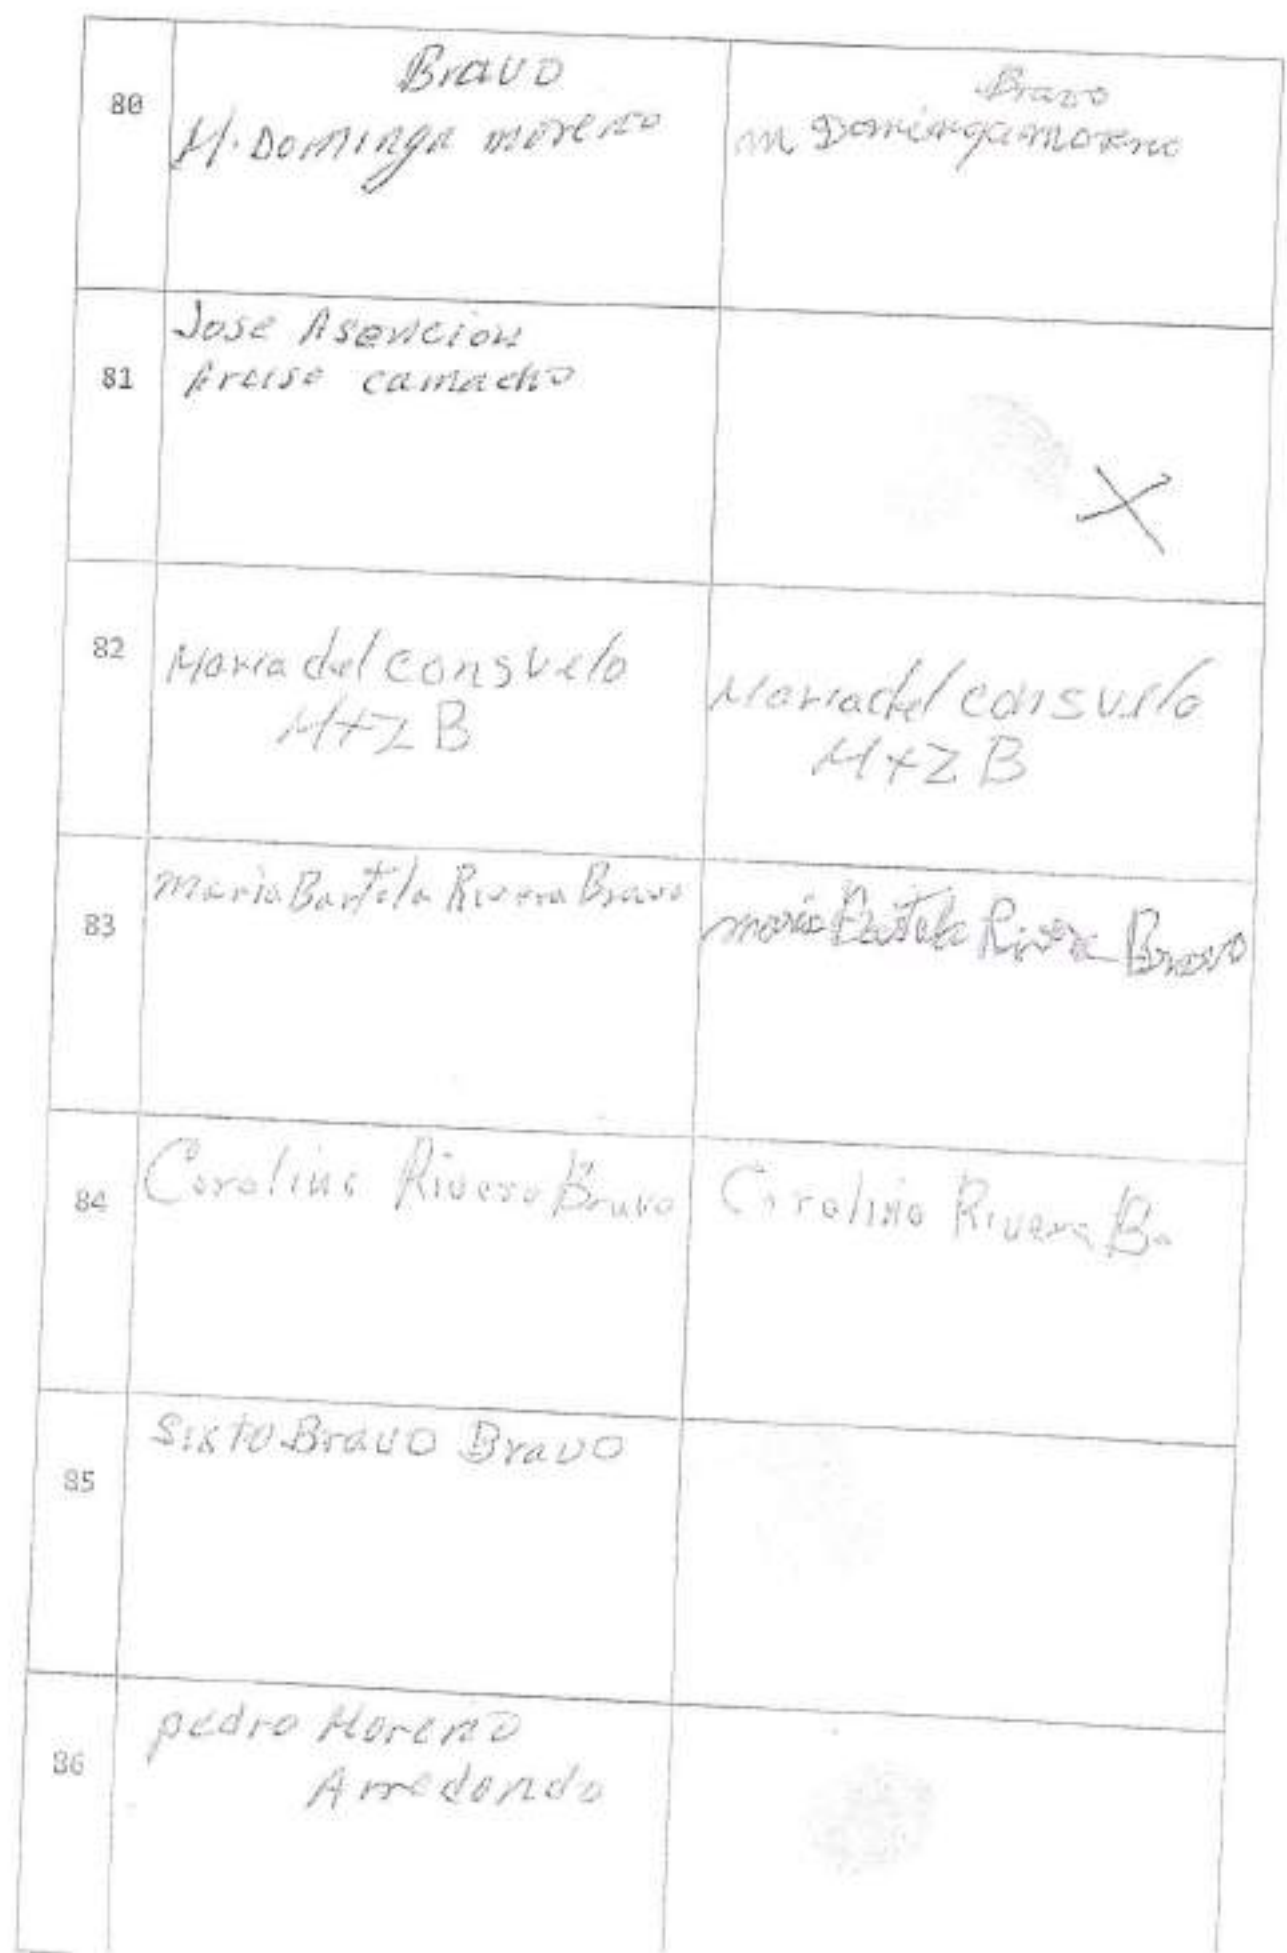 80
Bravo
M. Dominga moreno
Bravo
m Dominga moreno
81
Jose Asencion
camacho
X
82
Maria del consuelo
M+Z B
Maria del consuelo
M+Z B
83
maria Bartola Rivera Bravo
maria Bartola Rivera Bravo
84
Carolina Rivera Bravo
Carolina Rivera B.
85
Sixto Bravo Bravo
86
pedro Moreno
Arredondo